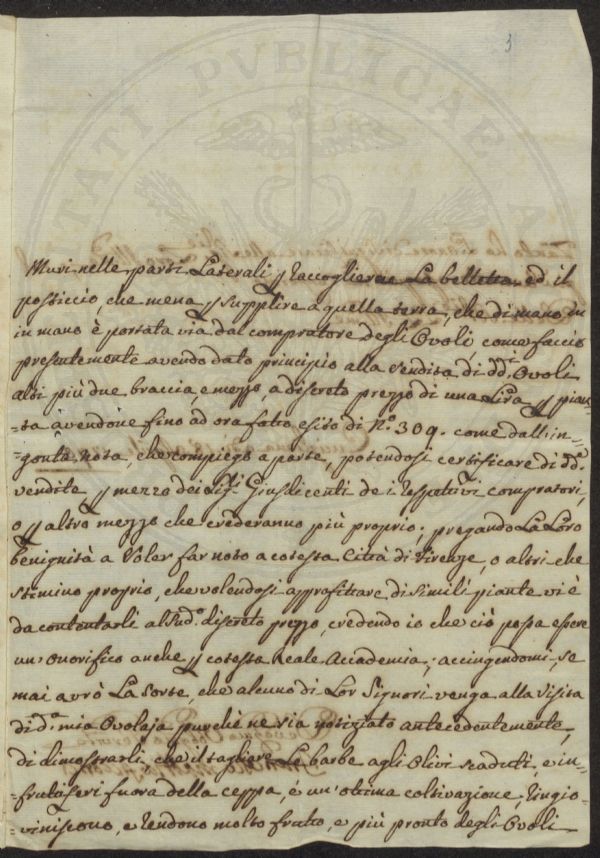 3
Muri nelle parti Laterali p raccogliere La belletta ed il
posticcio, che mena p supplire a quella terra, che di mano in
in mano è portata via dal compratore degli Ovoli, come faccio
presentemente avendo dato principio alla vendita di dd.ti Ovoli
alti più due braccia, e mezzo, a discreto prezzo di una Lira p pian-
-ta àvendone fino ad ora fatto esito di N.o 309. come dall'in-
-gonta nota, che compiego a parte, potendosi certificare di dd.e
vendite p mezzo dei Sig.ri Giusdicenti dei respettivi compratori,
o p altro mezzo che crederanno più proprio; pregando La Loro
benignità a Voler far noto a cotesta Città di Firenze, o altri che
stimino proprio, che volendosi approfittare di simili piante vi è
da contentarli al Sud.o discreto prezzo, credendo io che ciò possa essere
un' onorifico anche p cotesta Reale Accademia; accingendomi, se
mai avrò La Sorte, che alcuno di Lor Signori venga alla Visita
di d.a mia Ovolaja purchè ne sia notiziato antecedentemente,
di dimostrarli, che il tagliere Le barbe agli Olivi scaduti, e in-
-frutiferi fuora della ceppa, è un' ottima coltivazione, ringio-
-viniscono, e rendono molto frutto, e più pronto degli Ovoli